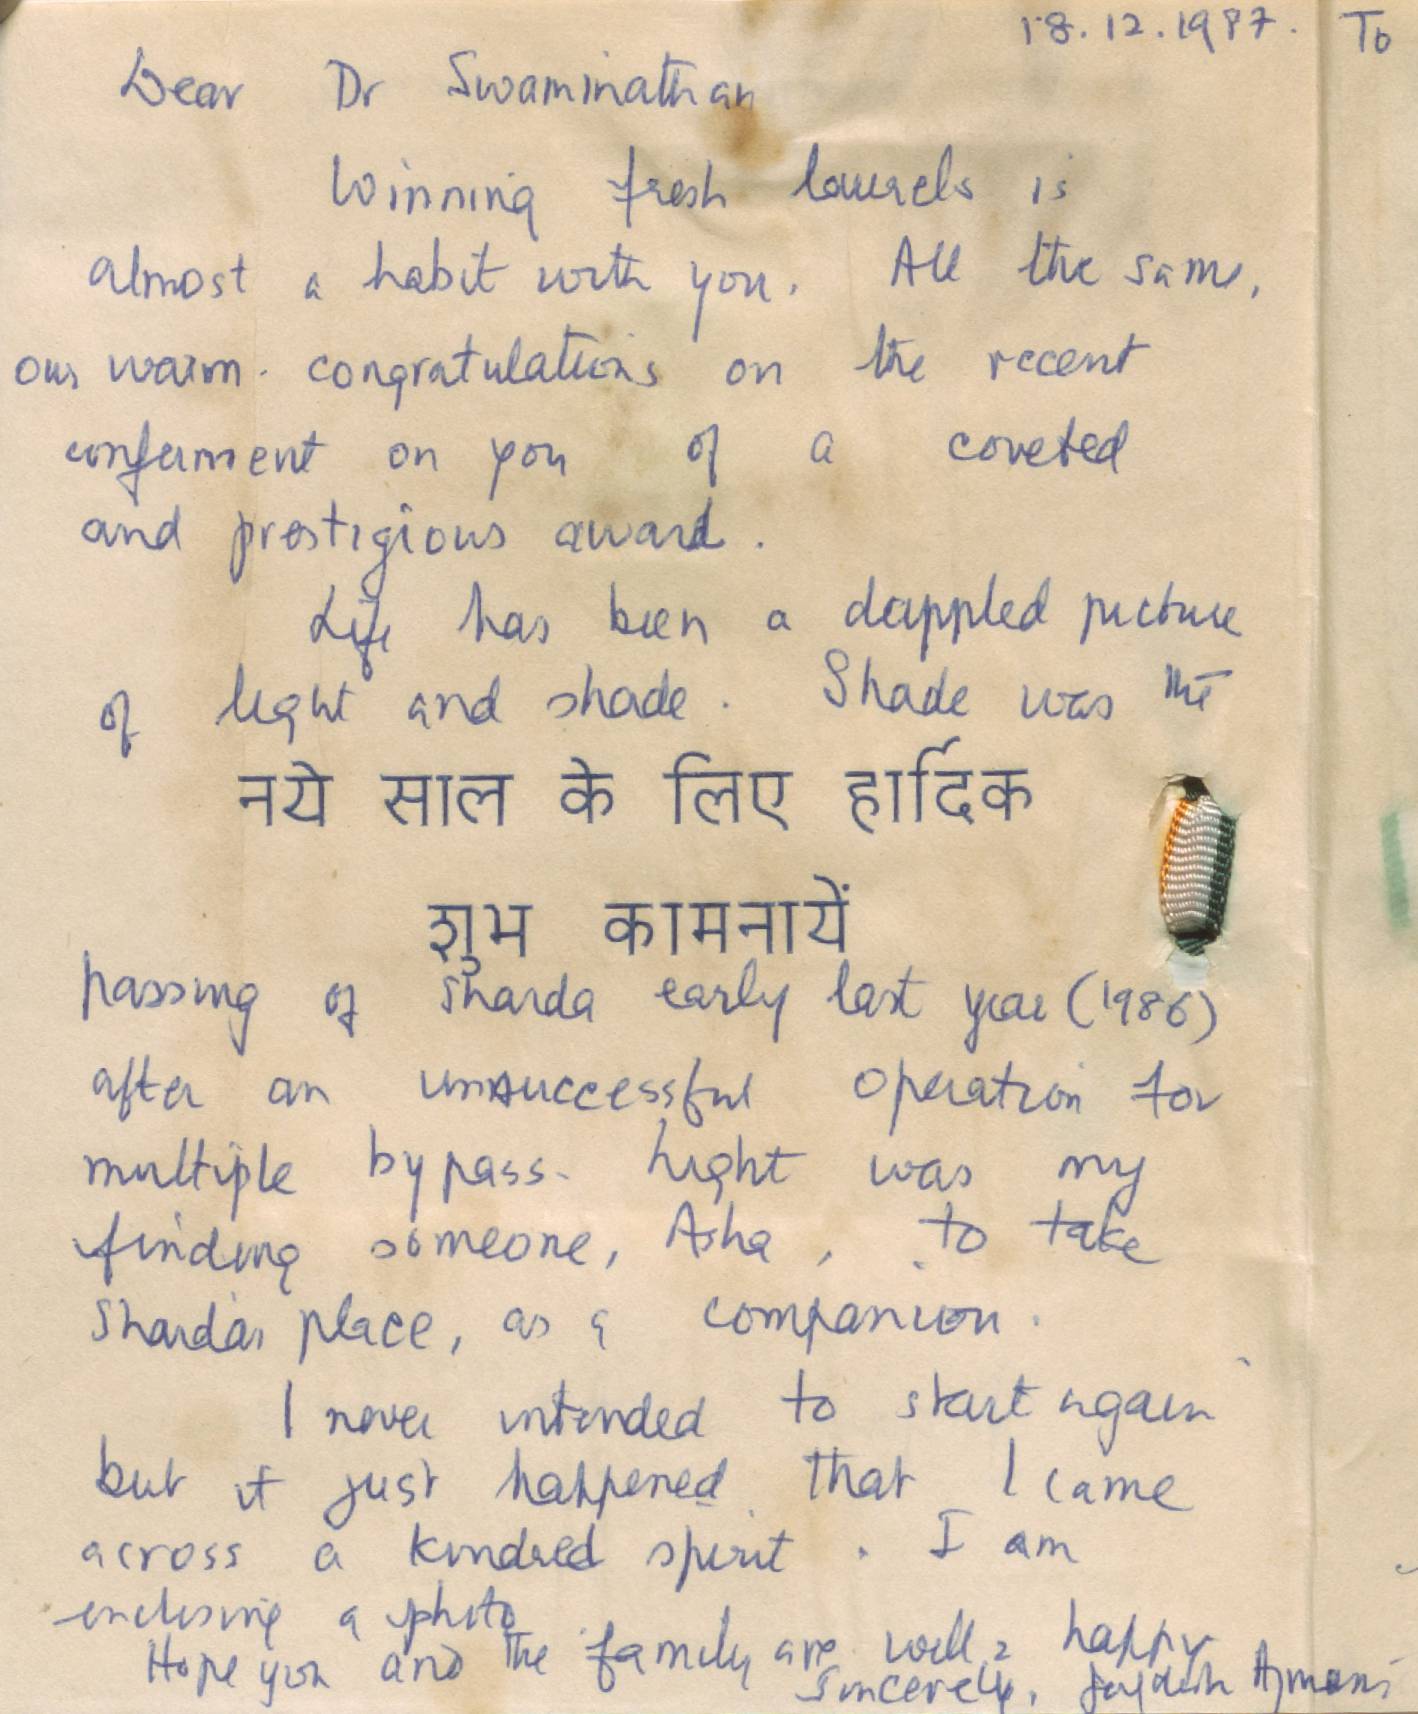 18.12.1987. To
Dear Dr Swaminathan
Winning fresh laurels is
almost a habit with you. All the same,
our warm congratulations on the recent
conferment on you of a coveted
and prestigious award.
Life has been a dappled picture
of light and shade. Shade was the
नये साल के लिए हार्दिक
शुभ कामनायें
passing of Sharda early last year (1986)
after an unsuccessful operation for
multiple bypass. Light was my
finding someone, Asha, to take
Sharda's place, as a companion.
I never intended to start again
but it just happened that I came
across a kindred spirit. I am
enclosing a photo
Hope you and the family are well & happy
Sincerely, Jagdish Ajmani